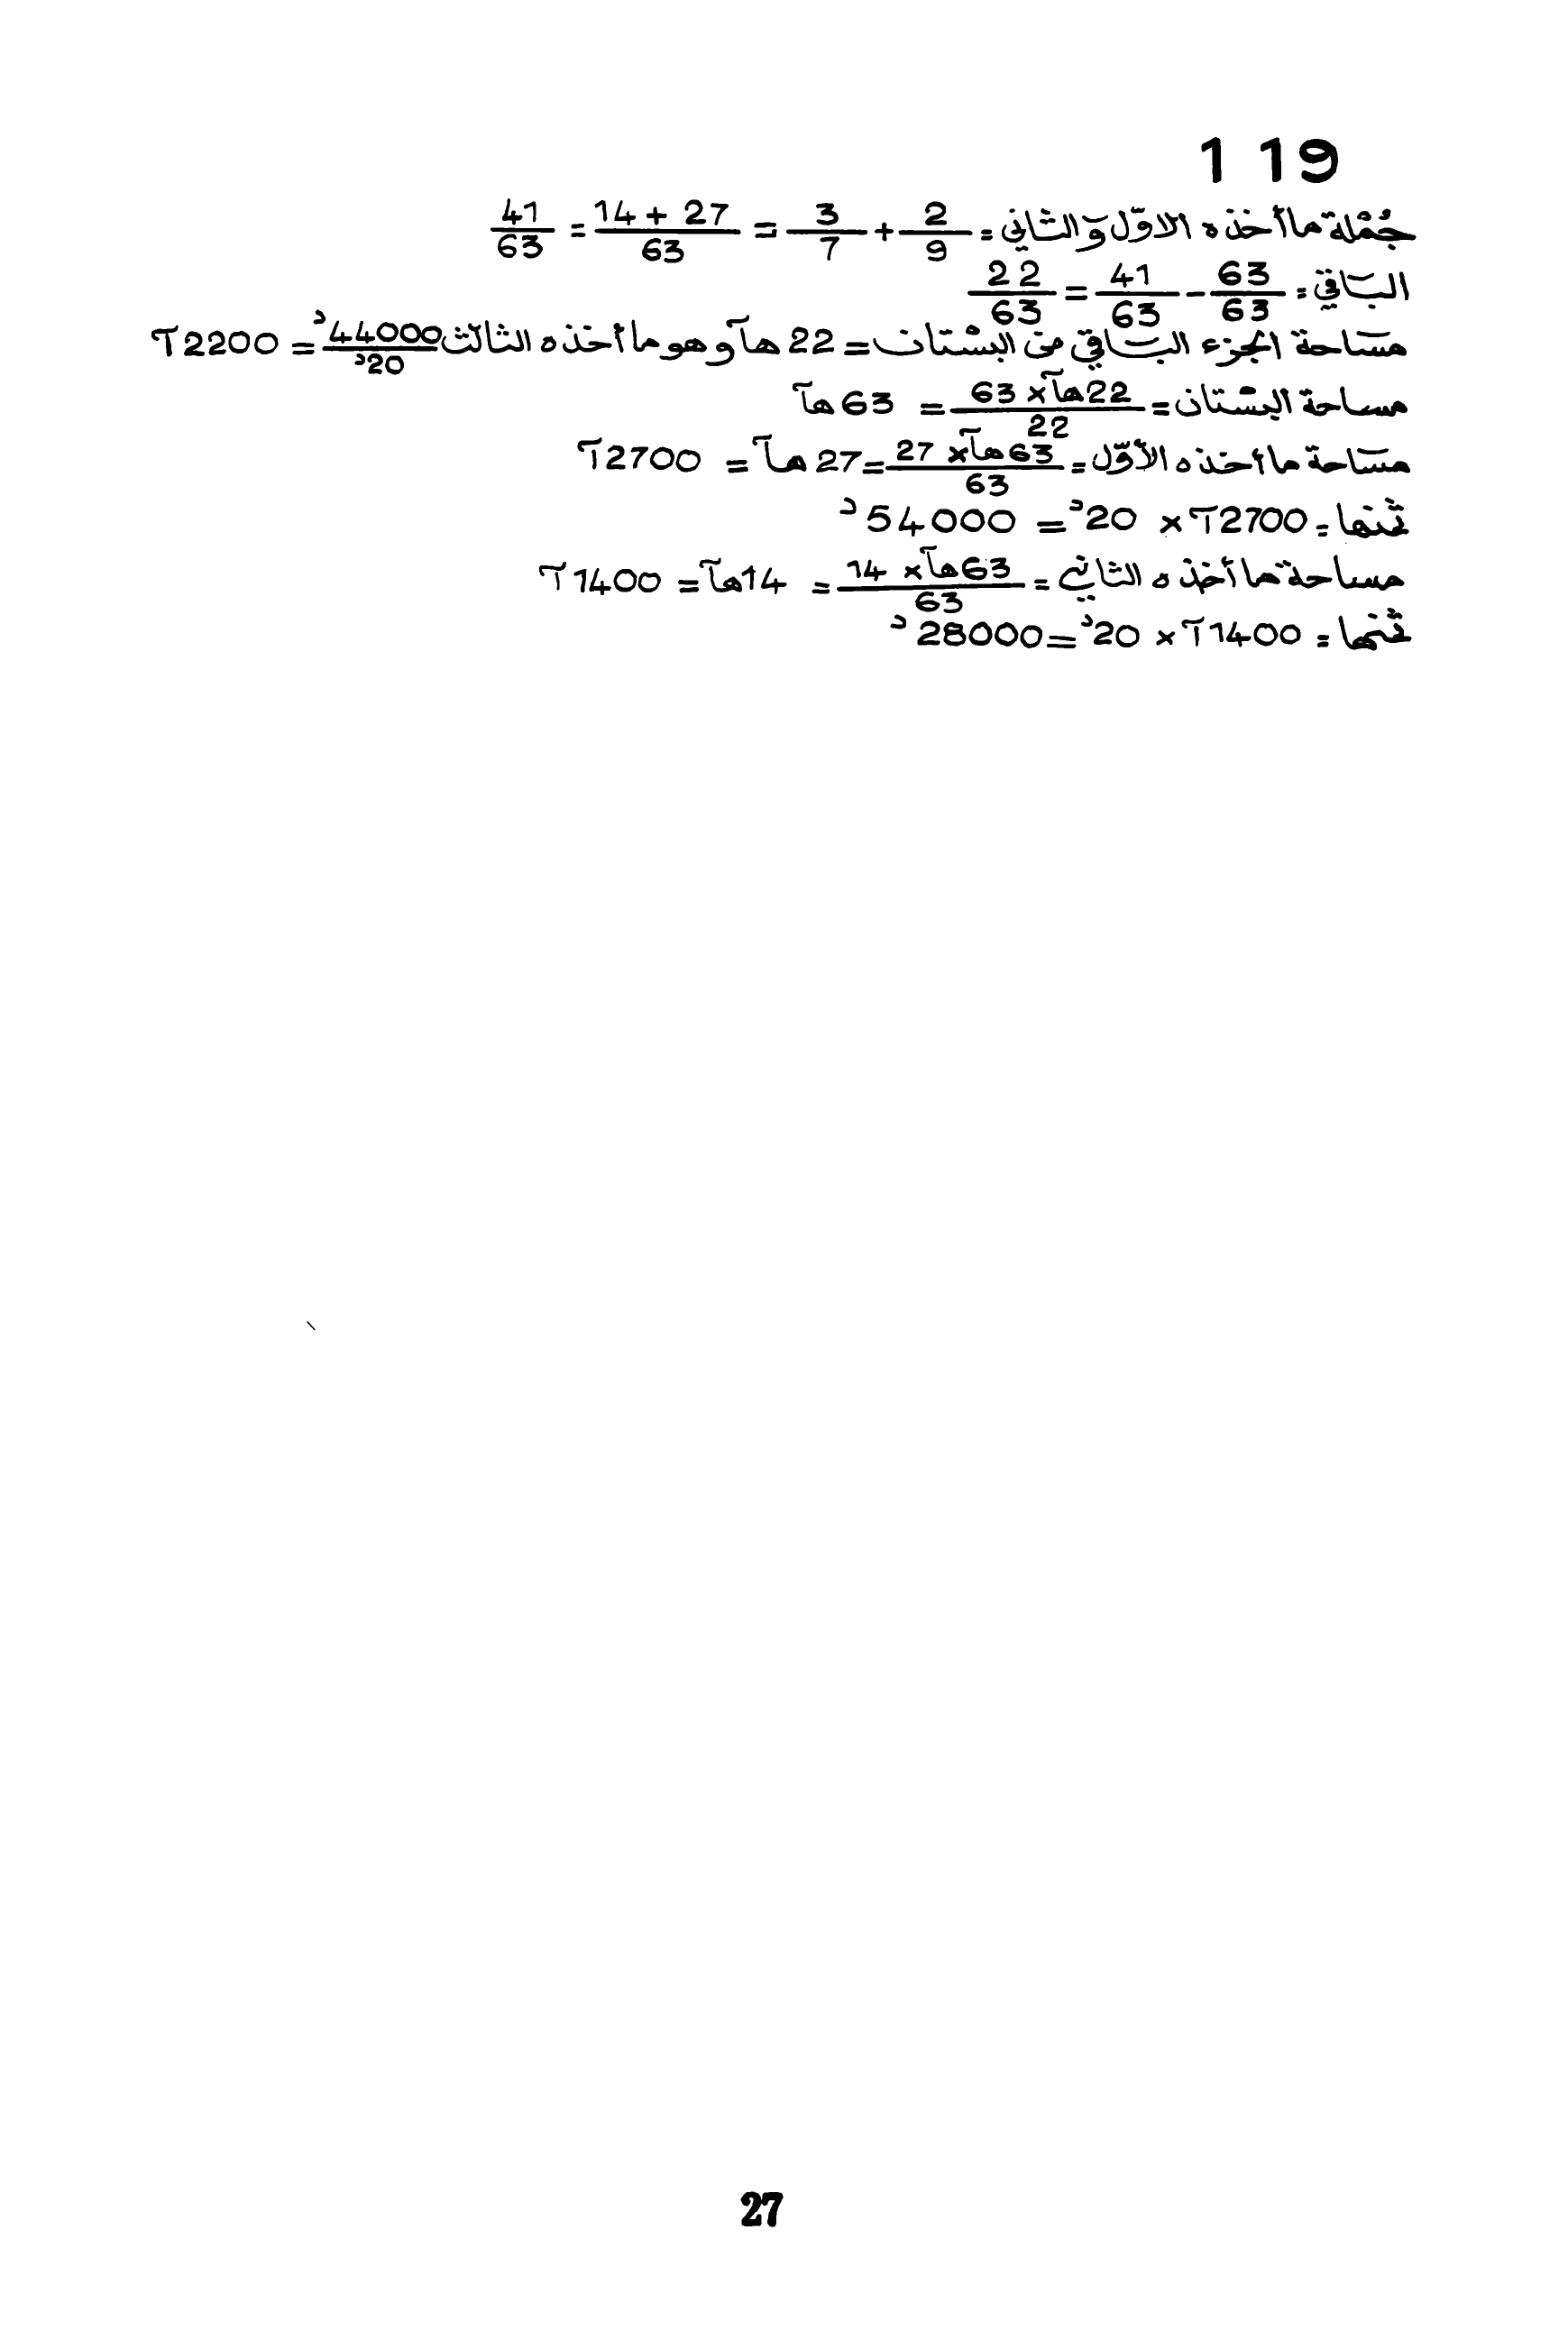 119
جُمْلة ما أخذه الاوّل وَالثاني = 2/9 + 3/7 = 14 + 27/63 = 41/63
البَاقي = 63/63 - 41/63 = 22/63
مسَاحة الجزء البَاقي من البسْتان = 22 هآ وهو ما أخذه الثالث 44000د/20د = 2200آ
مساحة البسْتان = 22هآ × 63/22 = 63هآ
مسَاحة ما أخذه الأوّل = 63هآ × 27/63 = 27هآ = 2700آ
ثمنها = 2700آ × 20د = 54000د
مساحة ما أخذه الثاني = 63هآ × 14/63 = 14هآ = 1400آ
ثمنها = 1400آ × 20د = 28000د
27